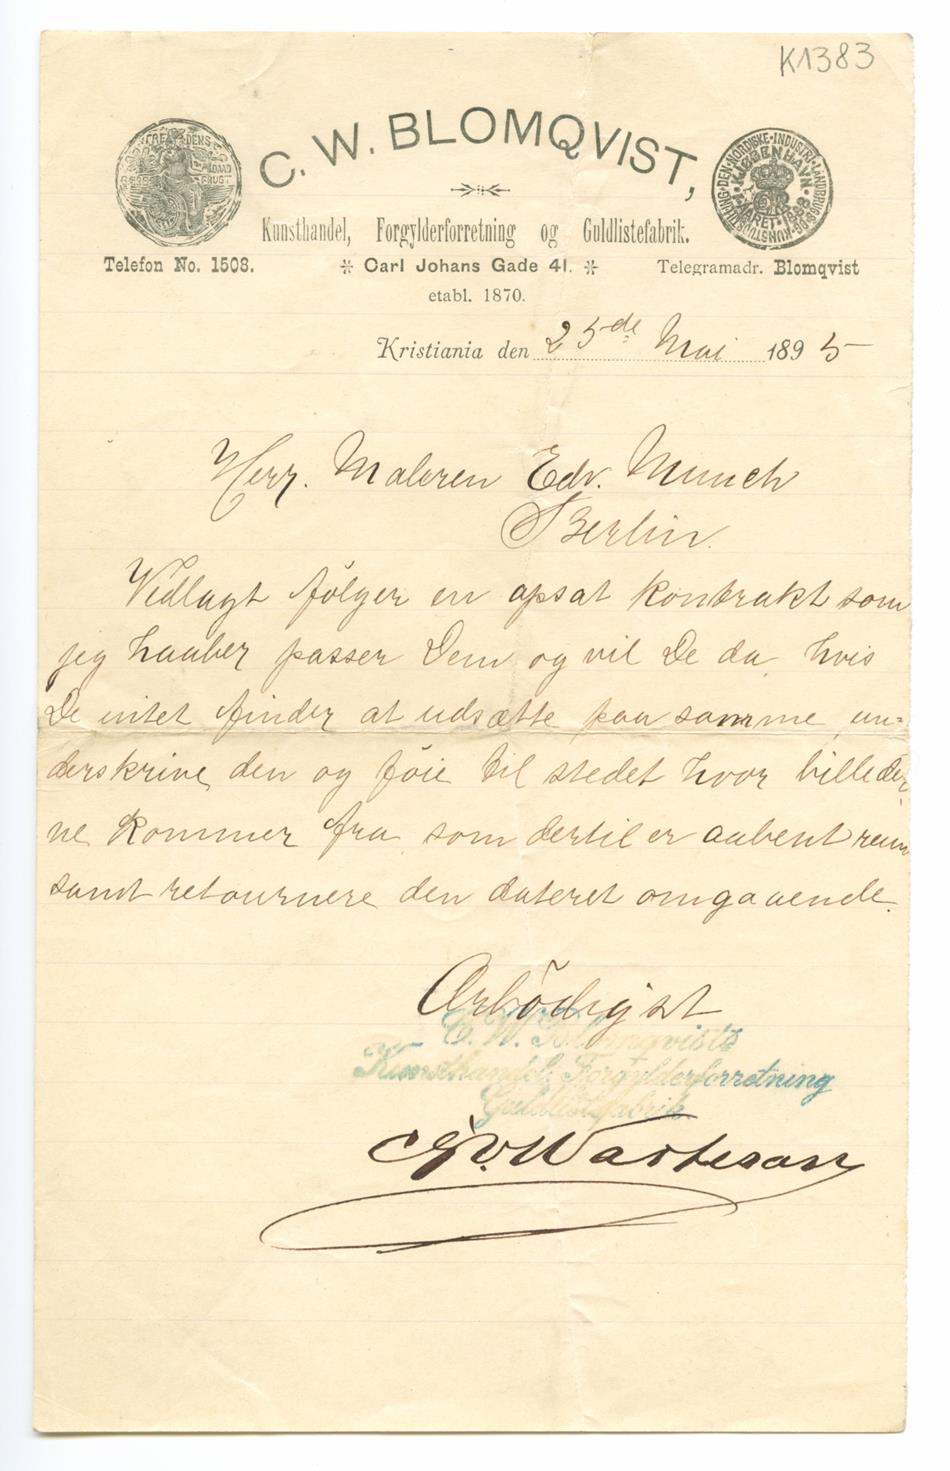 K1383
C. W. BLOMQVIST,
CREDENS
DEN NORDISKE INDUSTRI LANDBRUGS OG KUNSTUDSTILLING
I KJØBENHAVN
AARET 1888
Kunsthandel, Forgylderforretning og Guldlistefabrik.
Telefon No. 1508.
Carl Johans Gade 41.
Telegramadr. Blomqvist
etabl. 1870.
Kristiania den 25de Mai 1895
Herr. Maleren Edv. Munch
Berlin.
Vedlagt følger en opsat kontrakt som
jeg haaber passer Dem og vil De da, hvis
De intet finder at udsætte paa samme, un=
derskrive den og føie til stedet hvor billeder,
ne kommer fra, som dertil er aabent rum
samt retournere den dateret omgaaende.
Ærbödigst
C. W. Blomqvist's
Kunsthandel, Forgylderforretning
Guldlistefabrik.